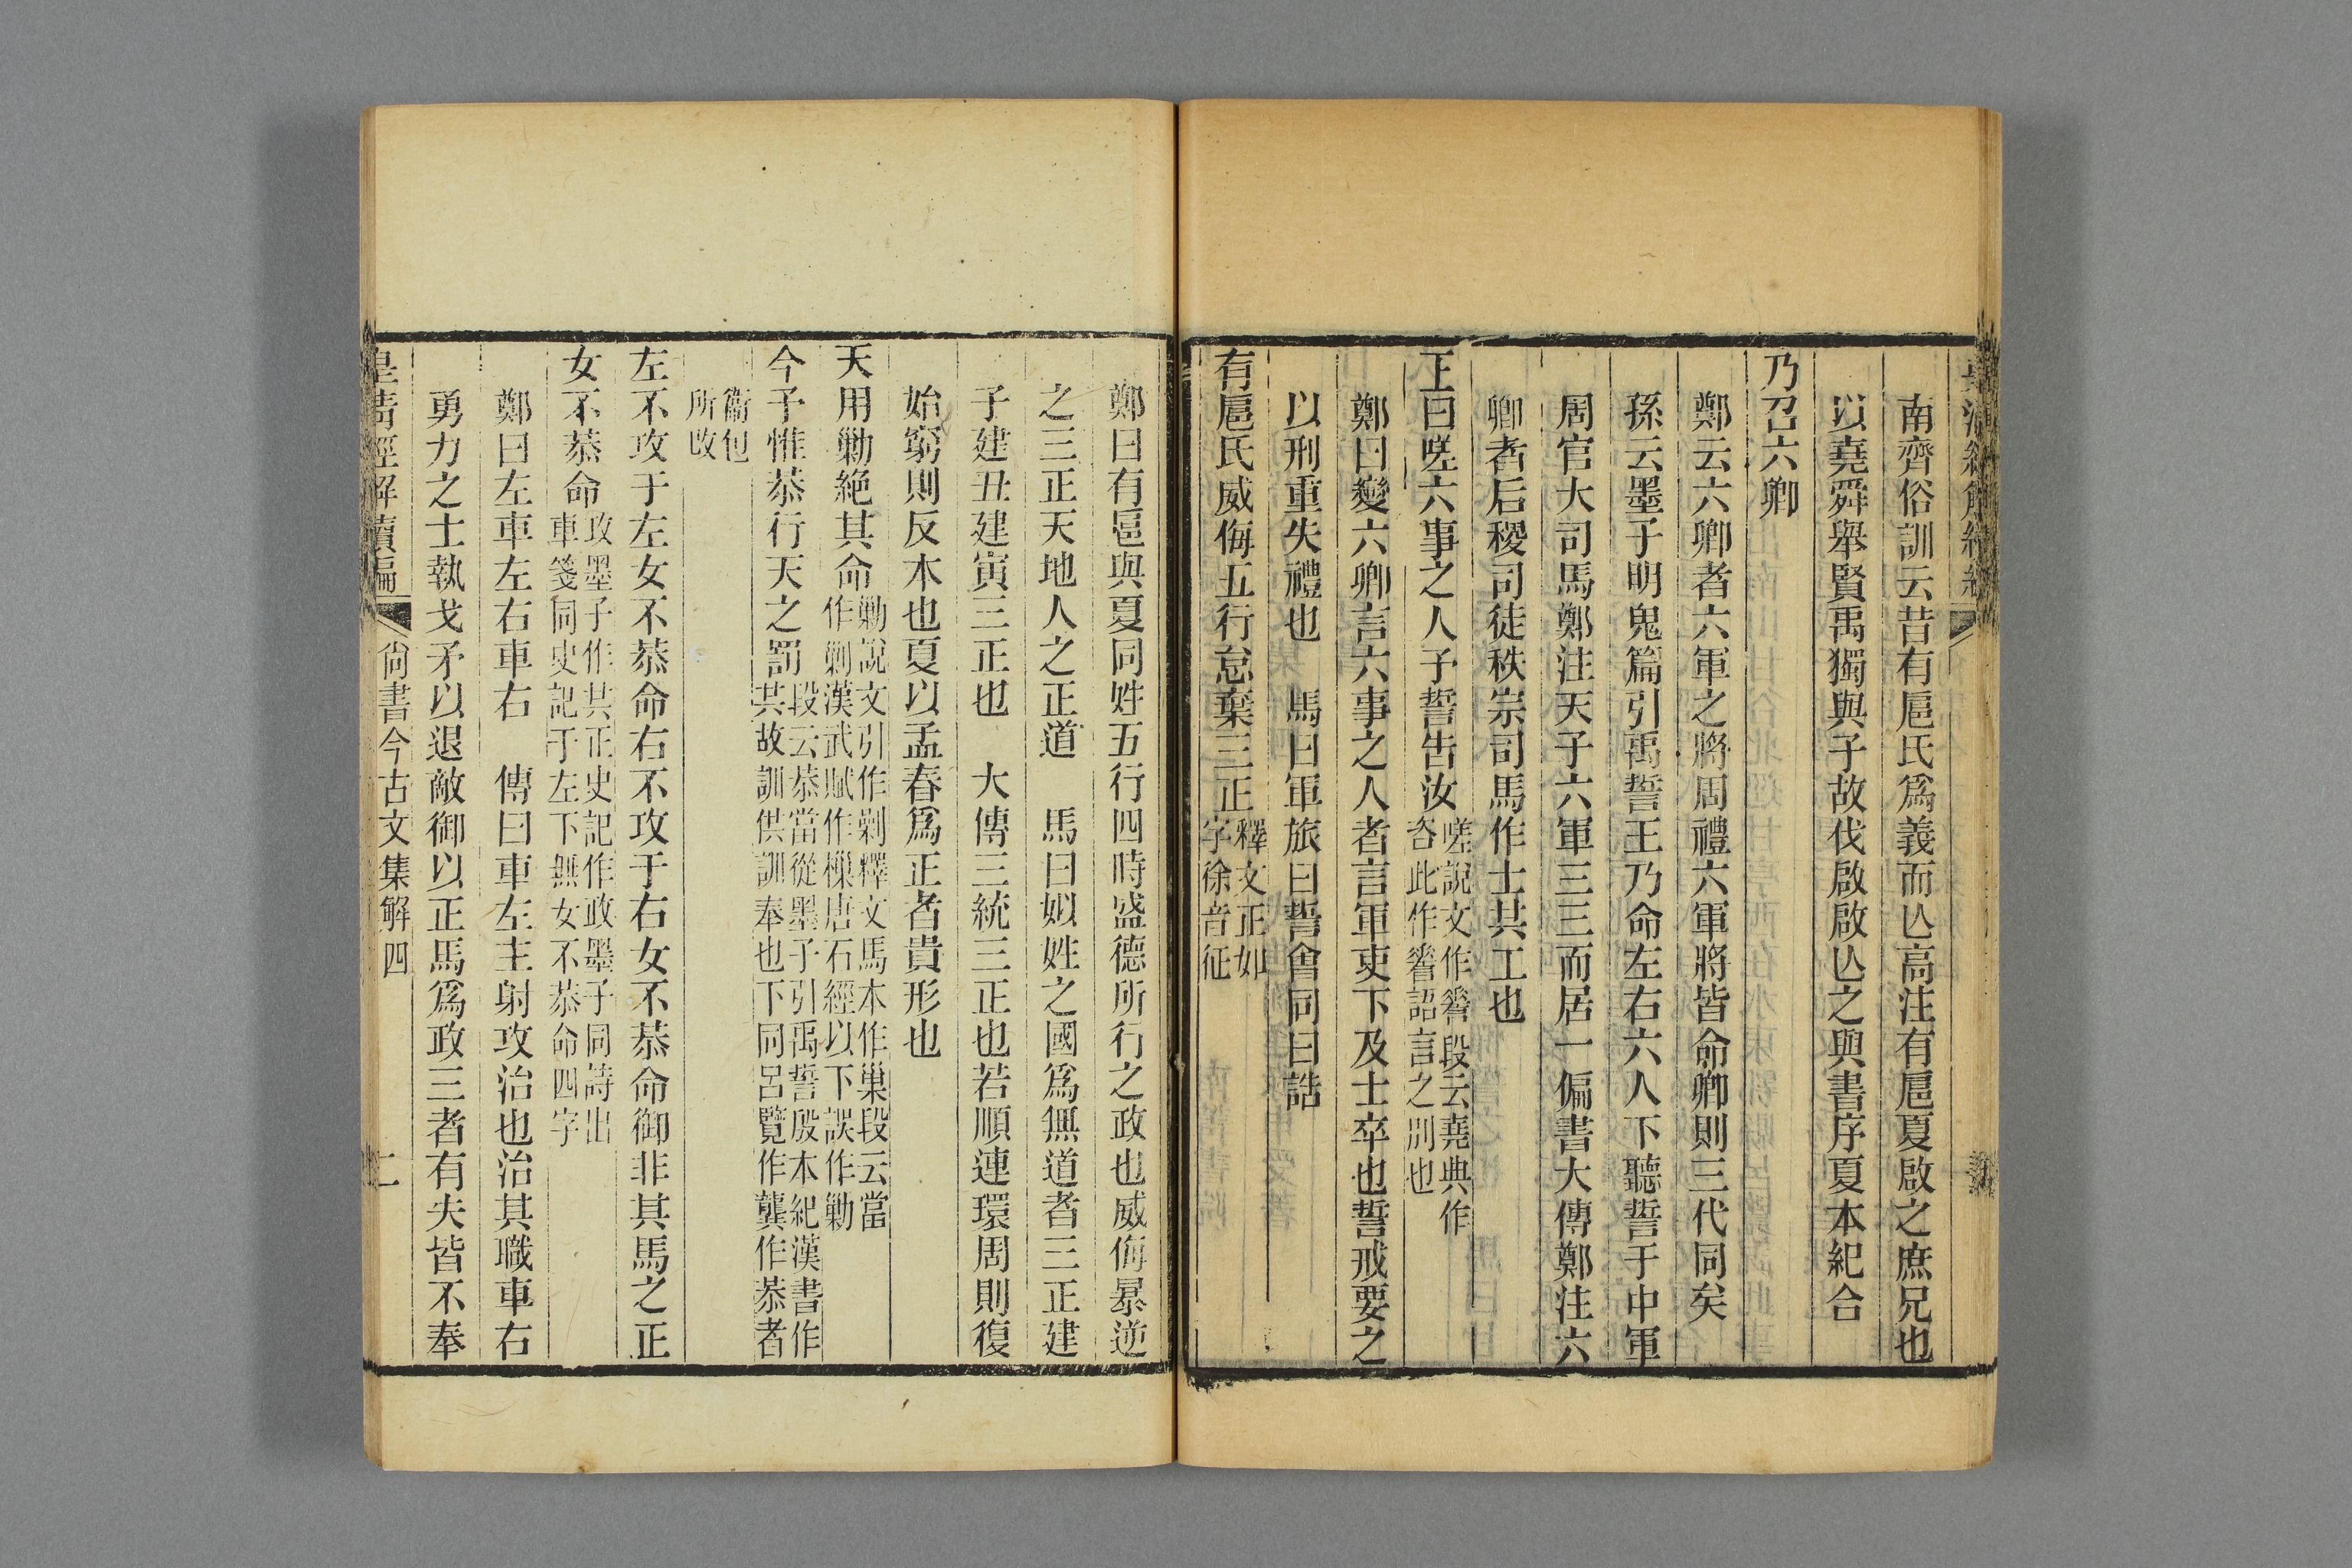 南齊俗訓云昔有扈氏爲義而亾高注有扈夏啟之庶兄也
以堯舜舉賢禹獨與子故伐啟啟亾之與書序夏本紀合
乃召六卿
鄭云六卿者六軍之將周禮六軍將皆命卿則三代同矣
孫云墨子明鬼篇引禹誓王乃命左右六人下聽誓于中軍
周官大司馬鄭注天子六軍三三而居一偏書大傳鄭注六
卿者后稷司徒秩宗司馬作士共工也
王曰嗟六事之人予誓告汝嗟說文作䜭段云堯典作
咨此作䜭詔言之別也
鄭曰變六卿言六事之人者言軍吏下及士卒也誓戒要之
以刑重失禮也　馬曰軍旅曰誓會同曰誥
有扈氏威侮五行怠棄三正釋文正如
字徐音征
鄭曰有扈與夏同姓五行四時盛德所行之政也威侮暴逆
之三正天地人之正道　馬曰姒姓之國爲無道者三正建
子建丑建寅三正也　大傳三統三正也若順連環周則復
始窮則反本也夏以孟春爲正者貴形也
天用勦絕其命勦說文引作剿釋文馬本作巢段云當
作剿漢武賦作樔唐石經以下誤作勦
今予惟恭行天之罰段云恭當從墨子引禹誓殷本紀漢書作
共故訓供訓奉也下同呂覽作龔作恭者
衞包
所改
左不攻于左女不恭命右不攻于右女不恭命御非其馬之正
女不恭命攻墨子作共正史記作政墨子同詩出
車箋同史記于左下無女不恭命四字
鄭曰左車左右車右　傳曰車左主射攻治也治其職車右
勇力之士執戈矛以退敵御以正馬爲政三者有失皆不奉
皇清經解續編　尙書今古文集解四　二